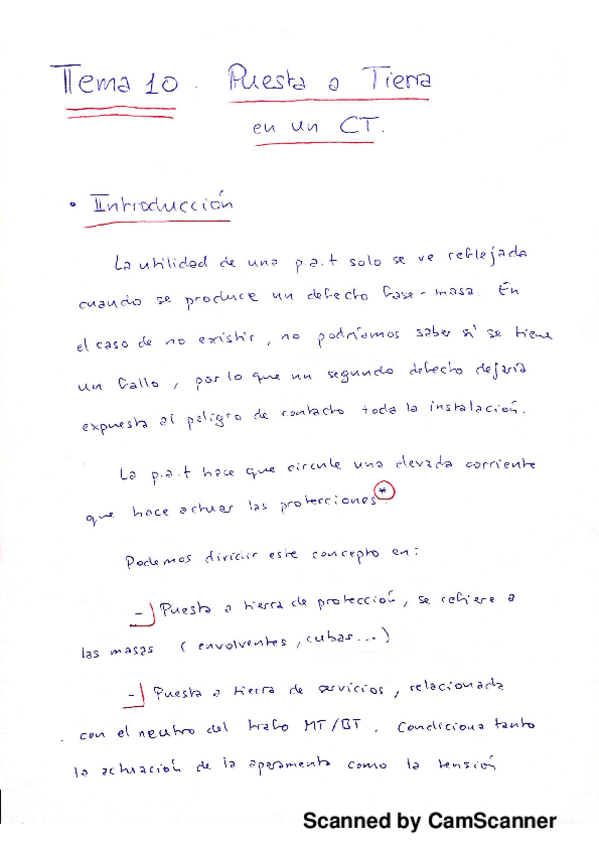 Tema 10. Puesta a Tierra
en un CT.
• Introducción
La utilidad de una p.a.t solo se ve reflejada
cuando se produce un defecto fase-masa. En
el caso de no existir, no podríamos saber si se tiene
un fallo, por lo que un segundo defecto dejaría
expuesta al peligro de contacto toda la instalación.
La p.a.t hace que circule una elevada corriente
que hace actuar las protecciones*.
Podemos dividir este concepto en:
- Puesta a tierra de protección, se refiere a
las masas (envolventes, cubas...)
- Puesta a tierra de servicios, relacionada
con el neutro del trafo MT/BT. Condiciona tanto
la actuación de la aparamenta como la tensión
Scanned by CamScanner